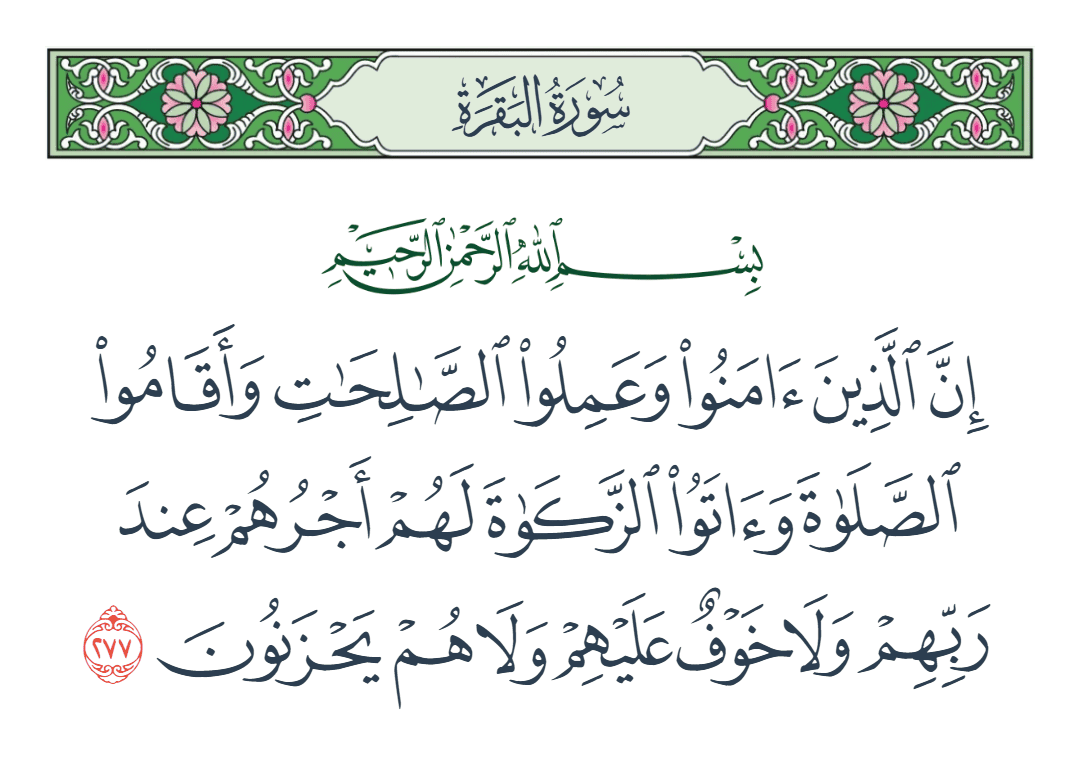 سُورَةُ البَقَرَةِ
بِسْمِ ٱللَّهِ ٱلرَّحْمَٰنِ ٱلرَّحِيمِ
إِنَّ ٱلَّذِينَ ءَامَنُوا۟ وَعَمِلُوا۟ ٱلصَّٰلِحَٰتِ وَأَقَامُوا۟
ٱلصَّلَوٰةَ وَءَاتَوُا۟ ٱلزَّكَوٰةَ لَهُمْ أَجْرُهُمْ عِندَ
رَبِّهِمْ وَلَا خَوْفٌ عَلَيْهِمْ وَلَا هُمْ يَحْزَنُونَ ٢٧٧